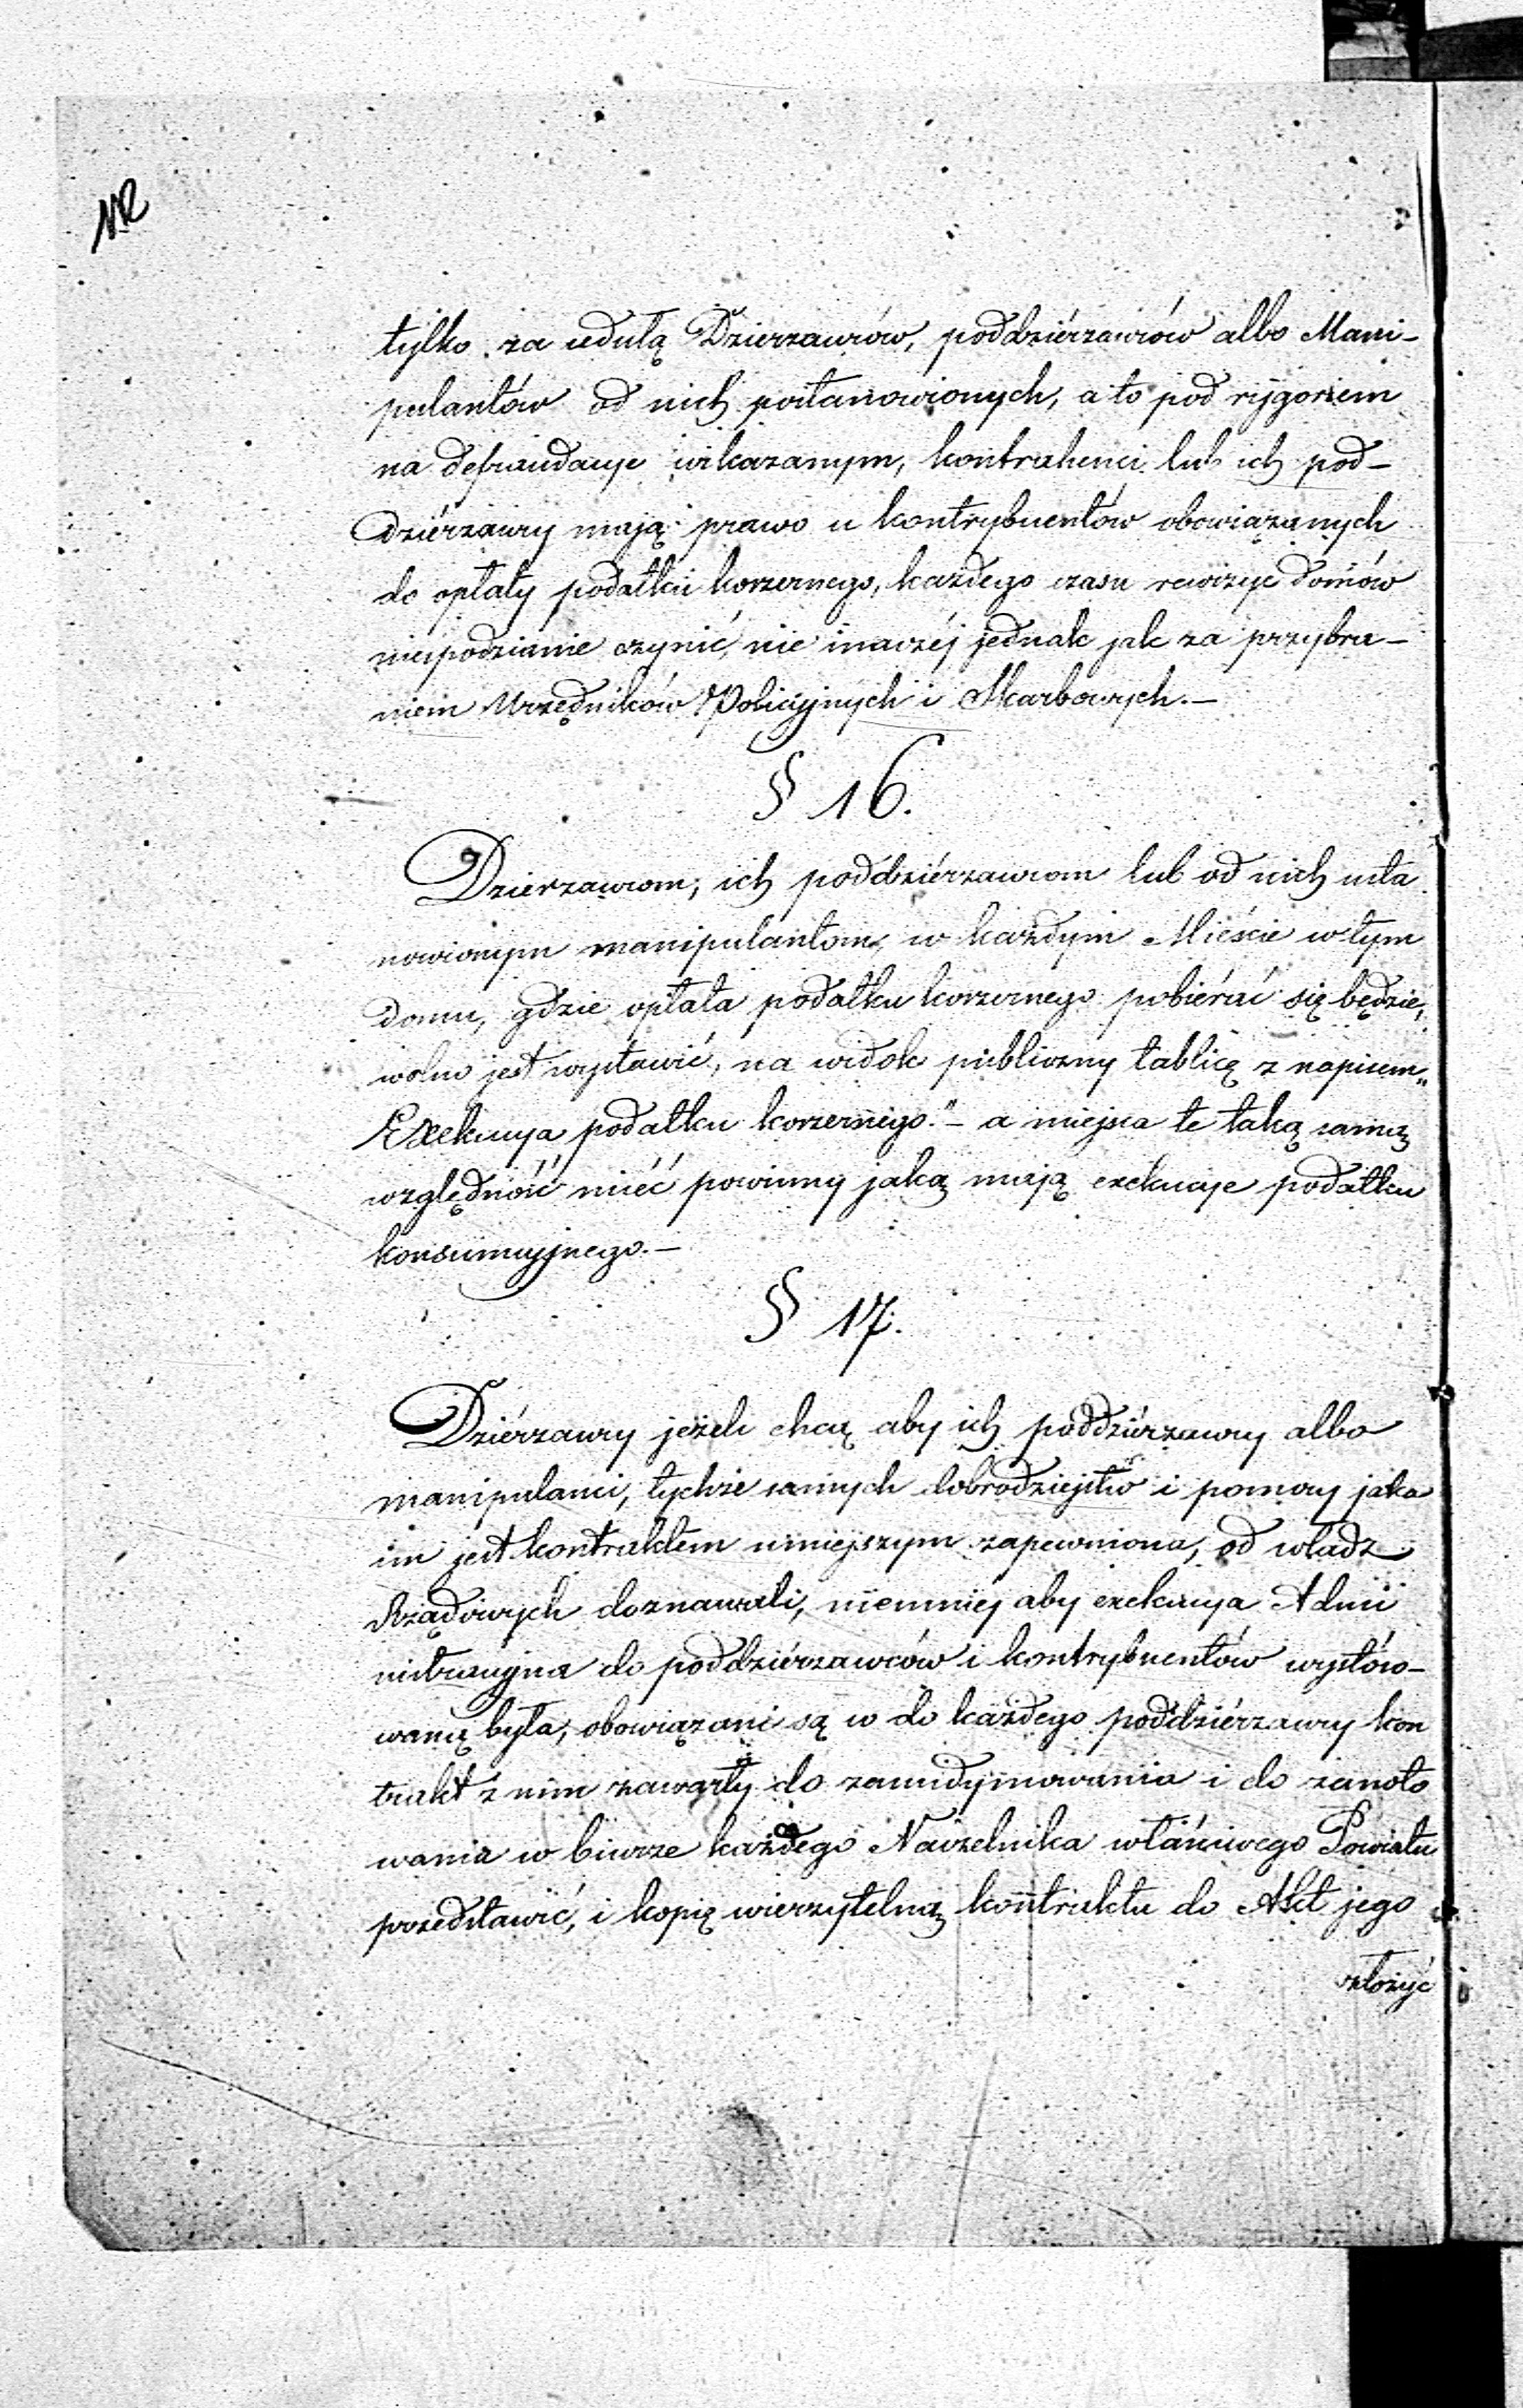 tylko za cedułą Dzierzawców, poddziérzawców albo Mani-
pulantów od nich postanowionych, a to pod rygorem
na defraudacye wskazanym, kontrahenci lub ich pod-
dziérzawcy mają prawo u kontrybuentów obowiązanych
do opłaty podatku koszernego, każdego czasu rewizye domów
niespodzianie czynić, nie inaczéj jednak jak za przybra-
niem Urzędników Policyjnych i Skarbowych.-
§ 16.
Dzierzawcom, ich poddziérzawcom lub od nich usta
nowionym manipulantom, w każdym Mieście w tym
domu, gdzie opłata podatku koszernego pobiérać się będzie,
wolno jest wystawić, na widok publiczny tablicę z napisem „
Exekucya podatku koszernego." - a miejsca te taką samą
względność mieć powinny jaką mają exekucye podatku
konsumcyjnego.-
§ 17.
Dziérzawcy jeżeli chcą aby ich poddziérzawcy albo
manipulanci, tychże samych dobrodziejstw i pomocy jaka
im jest kontraktem niniejszym zapewniona, od władz
Rządowych doznawali, niemniej aby exekucya Admi
nistracyjna do poddziérzawców i kontrybuentów wystóso-
waną była, obowiązani są co do każdego poddziérzawcy kon
trakt z nim zawarty do zawidymowania i do zanoto
wania w biurze każdego Naczelnika właściwego Powiatu
przedstawić, i kopię wierzytelną kontraktu do Akt jego
złożyć